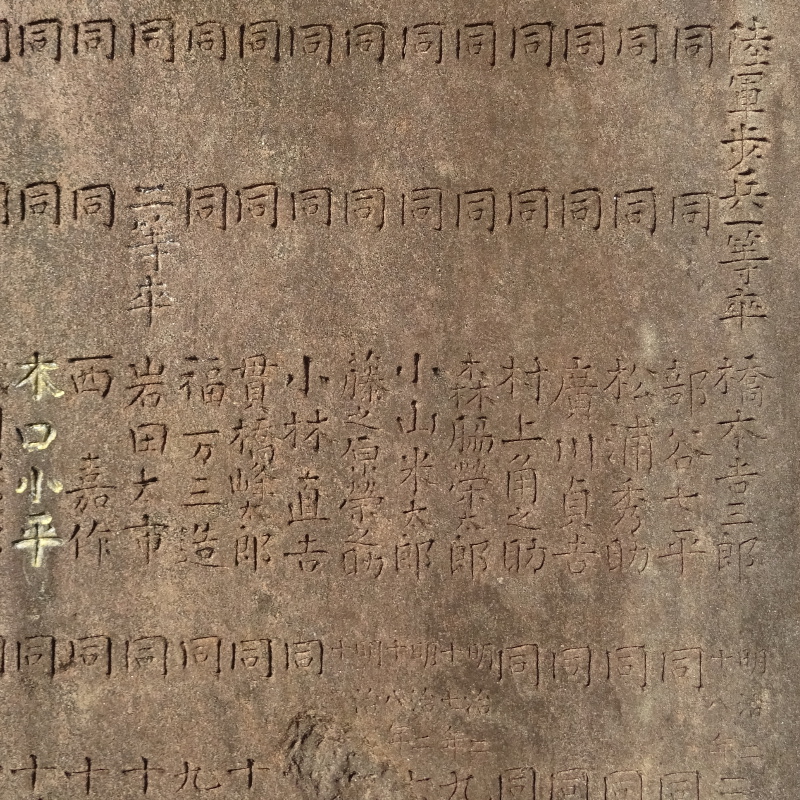 陸軍歩兵一等卒 橋本吉三郎 明治二十八年
同 同 部谷七平 同 同
同 同 松浦秀助 同 同
同 同 廣川貞吉 同 同
同 同 村上角之助 同 同
同 同 森脇榮太郎 明治二十七年 九
同 同 小山米太郎 明治二十八年 六
同 同 藤之原榮之助 明治
同 同 小林直吉 同
同 同 貫橋峰太郎 同 十
同 同 福万三造 同 九
同 二等卒 岩田大市 同 十
同 同 西嘉作 同 十
同 同 木口小平 同 十